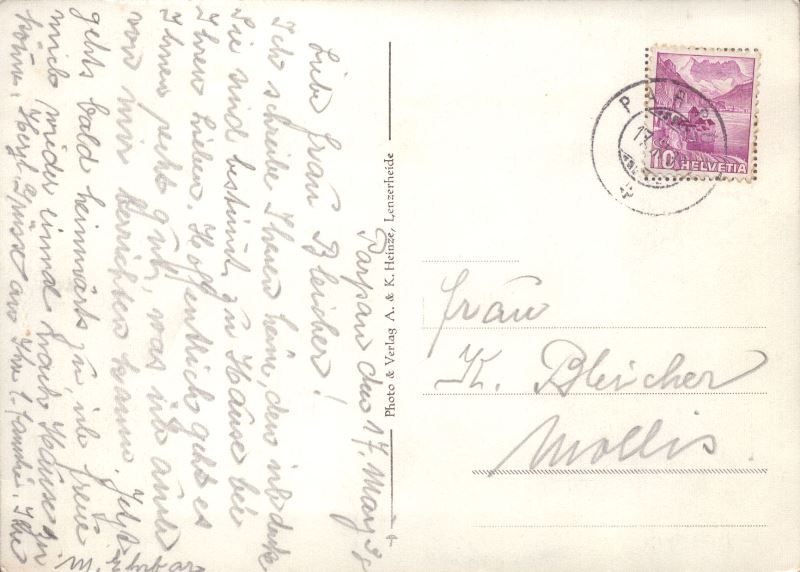 Parpan den 17. May 39
Liebe Frau Bleicher!
Ich schreibe Ihnen heim, den ich denke
Sie sind bestimt zu Hause bei
Ihren Lieben. Hoffentlich geht es
Ihnen recht gut, was ich auch
von mir berichten kann. Jetzt
gehts bald heimwärts zu, ich freue
mich wieder einmal nach Hause zu
Herzl. Grüsse an Ihre l. Familie. Ihre
M.
Photo & Verlag A. & K. Heinze, Lenzerheide
PARPAN
17.
10 HELVETIA
Frau
K. Bleicher
Mollis